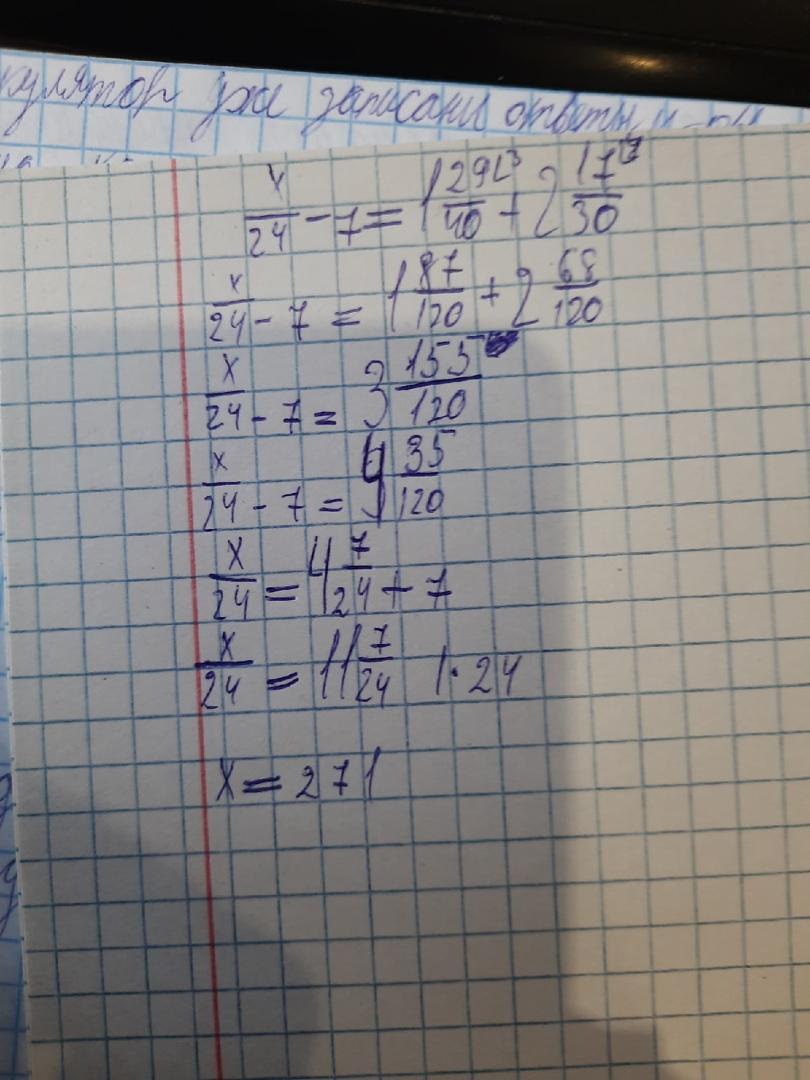 кулятор уже записани ответы и
x/24 - 7 = 1 29/40 + 2 17/30
x/24 - 7 = 1 87/120 + 2 68/120
x/24 - 7 = 3 155/120
x/24 - 7 = 4 35/120
x/24 = 4 7/24 + 7
x/24 = 11 7/24 | · 24
x = 271